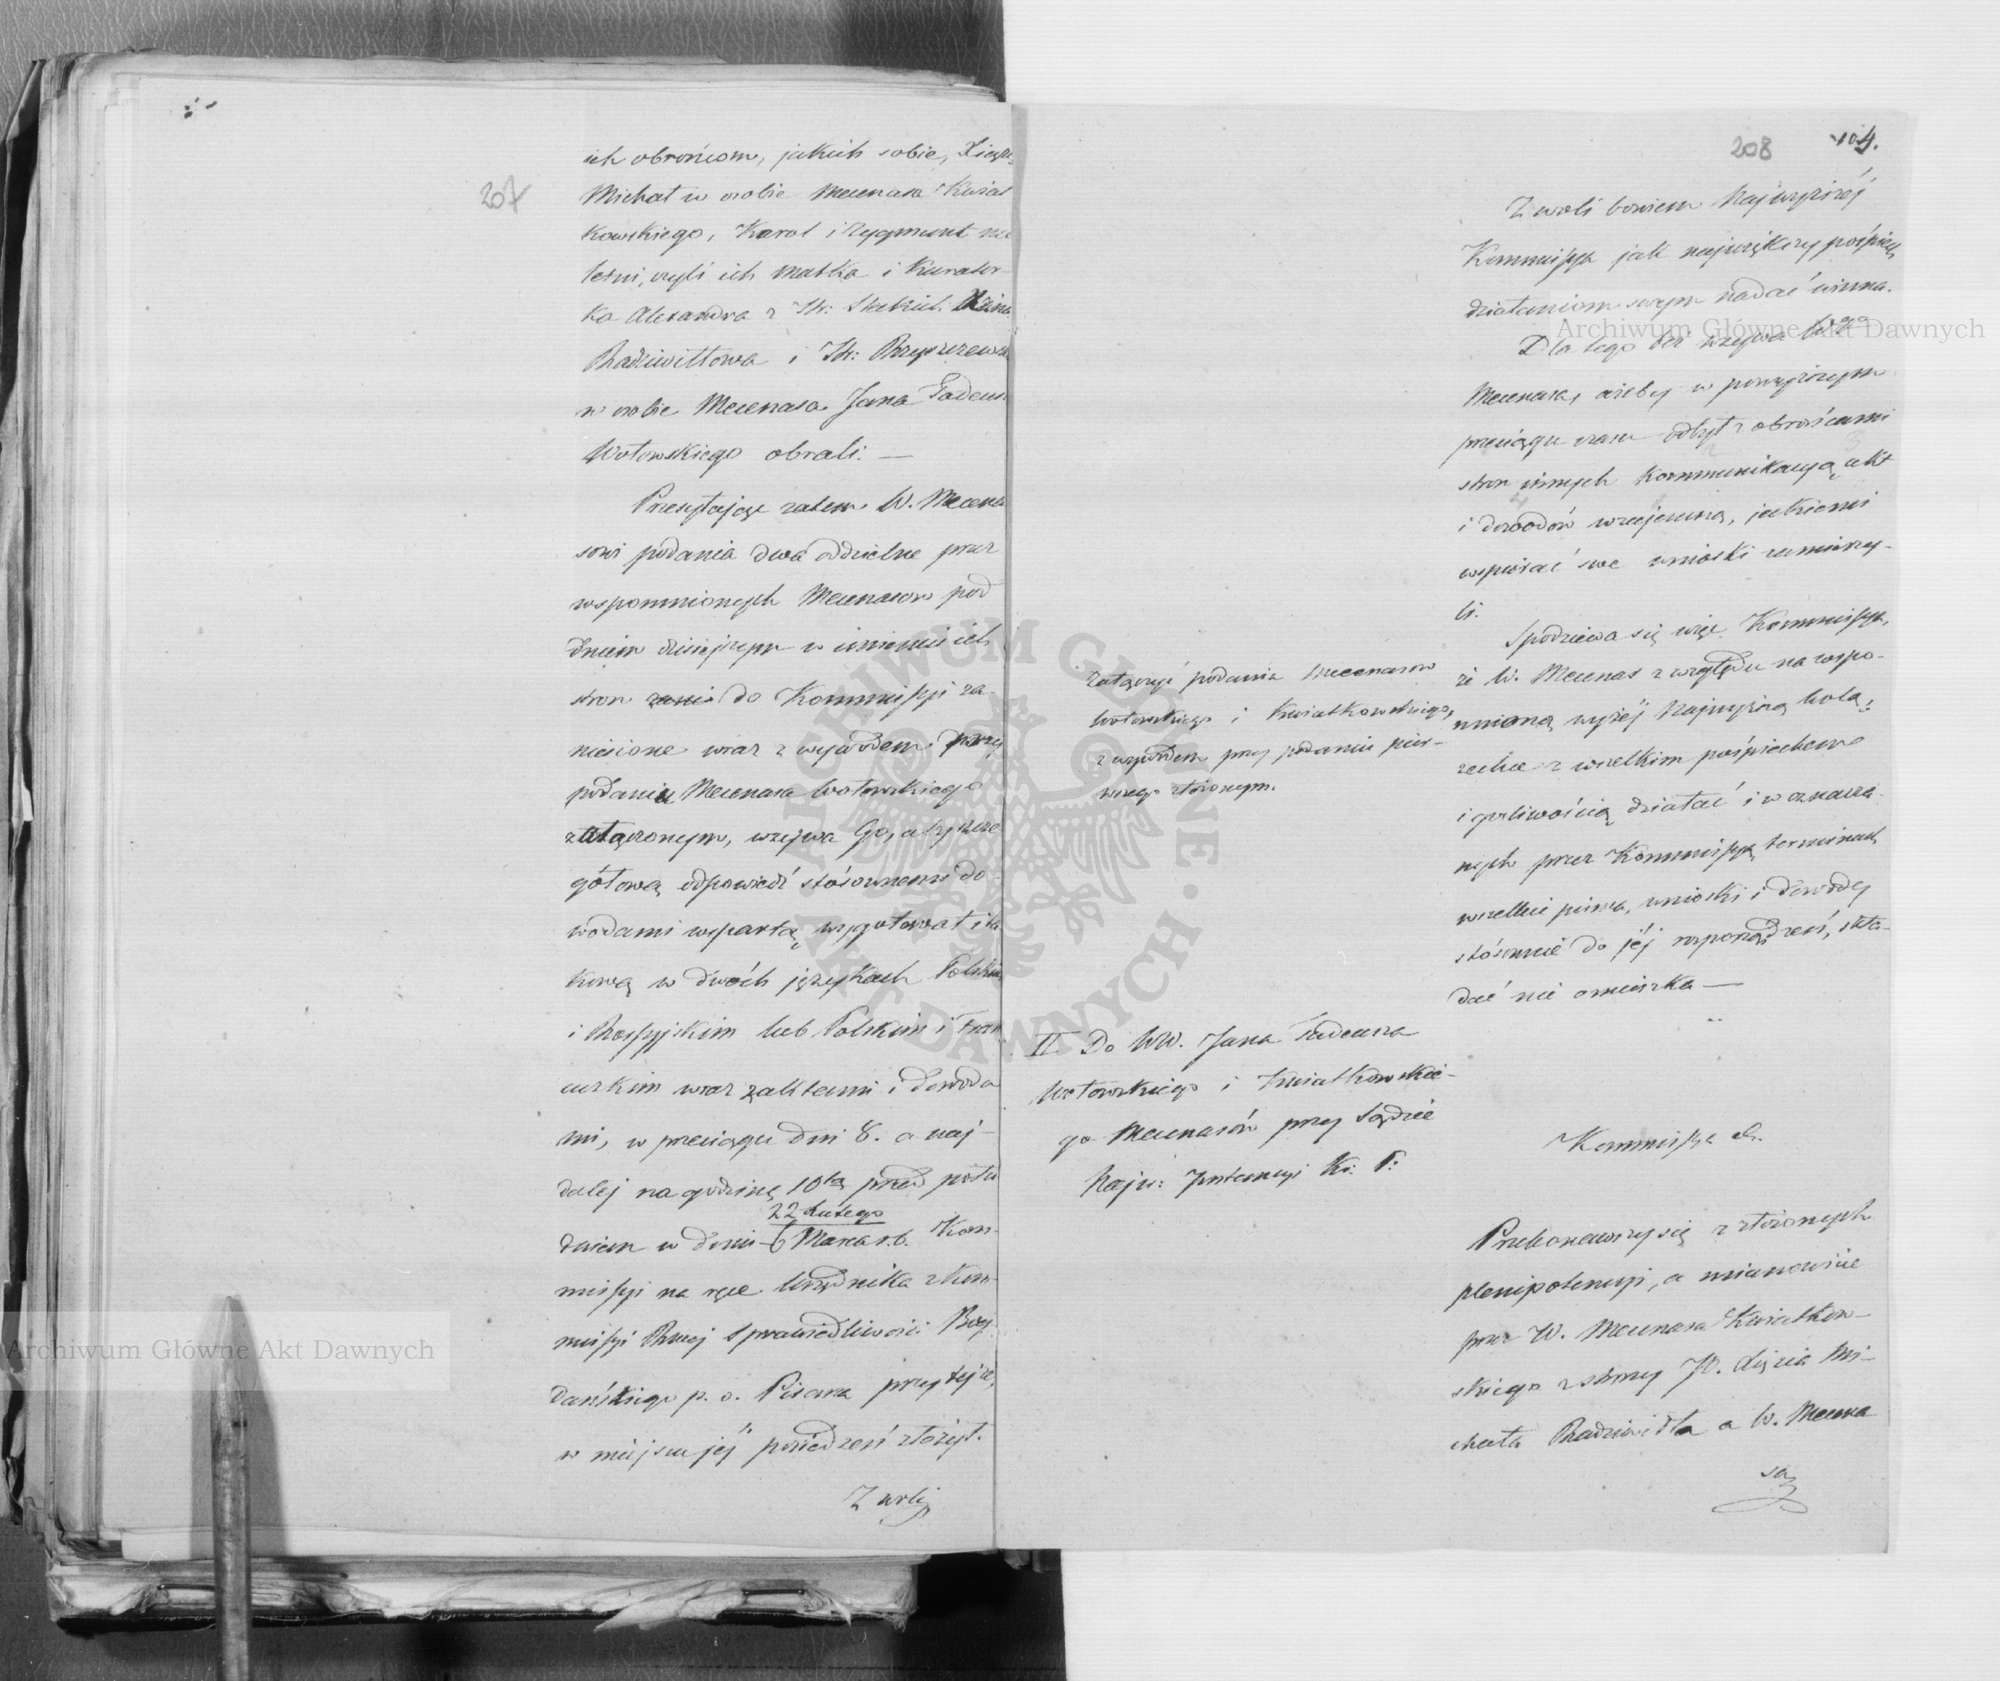 207
ich obrońcom, jakich sobie, Xiąże
Michał w osobie Mecenasa Kwiat
kowskiego, Karol i Zygmunt nie
letni, czyli ich matka i kurator-
ka Alexandra z Hr: Steckich Xżna
Radziwiłłowa i Hr: Rzyszczewska
w osobie Mecenasa Jana Tadeusza
Wołowskiego obrali. —
Przesyłając zatem W. Mecena
sowi podania dwa oddzielne przez
wspomnionych Mecenasów pod
dniem dzisiejszym w imieniu ich
stron do Kommissyi za-
niesione wraz z wywodem przy
podaniu Mecenasa Wołowskiego
załączonym, wzywa Go, aby szcze
gółową odpowiedź stósownemi do-
wodami wspartą wygotował i ta
kową w dwóch językach Polskim
i Rossyjskim lub Polskim i Fran
cuzkim wraz z aktami i dowoda
mi, w przeciągu dni 8. a naj-
dalej na godzinę 10tą przed połu
22 Lutego
dniem w dniu 6 Marca r.b. Kom-
missyi na ręce Urzędnika z Kom-
missyi Rząd: Sprawiedliwości Bog
dańskiego p. o. Pisarza przy tejże,
w miejscu jéj posiedzeń złożył.
Z woli
208
104.
Z woli bowiem Najwyższéj
Kommissya jak największy pośpiech
działaniom swym nadać winna.
Dla tego też wzywa Wgo
Mecenasa, ażeby w powyższym
przeciągu czasu odbył z obrońcami
stron innych kommunikacyą akt
i dowodów wzajemną, jakiemi
wspierać swe wnioski zamierzy-
li.
Spodziewa się więc Kommissya,
że W. Mecenas z względu na wspo-
mnioną wyżéj Najwyższą wolą,
zechce z wszelkim pośpiechem
i gorliwością działać i w oznaczo-
nych przez Kommissyą terminach
wszelkie pisma, wnioski i dowody
stósownie do jéj rozporządzeń, skła-
dać nie omieszka —
Załączyć podania Mecenasów
Wołowskiego i Kwiatkowskiego,
z wywodem przy podaniu pier-
wszego złożonym.
II Do WW. Jana Tadeusza
Wołowskiego i Kwiatkowskie-
go Mecenasów przy Sądzie
Najw: Instancyi Kr: P:
Kommissya etc.
Przekonawszy się z złożonych
plenipotencyi, a mianowicie
przez W. Mecenasa Kwiatkow-
skiego z strony JO. Xięcia Mi-
chała Radziwiłła a W. Mecena
sa
Archiwum Główne Akt Dawnych
Archiwum Główne Akt Dawnych
ARCHIWUM GŁÓWNE AKT DAWNYCH